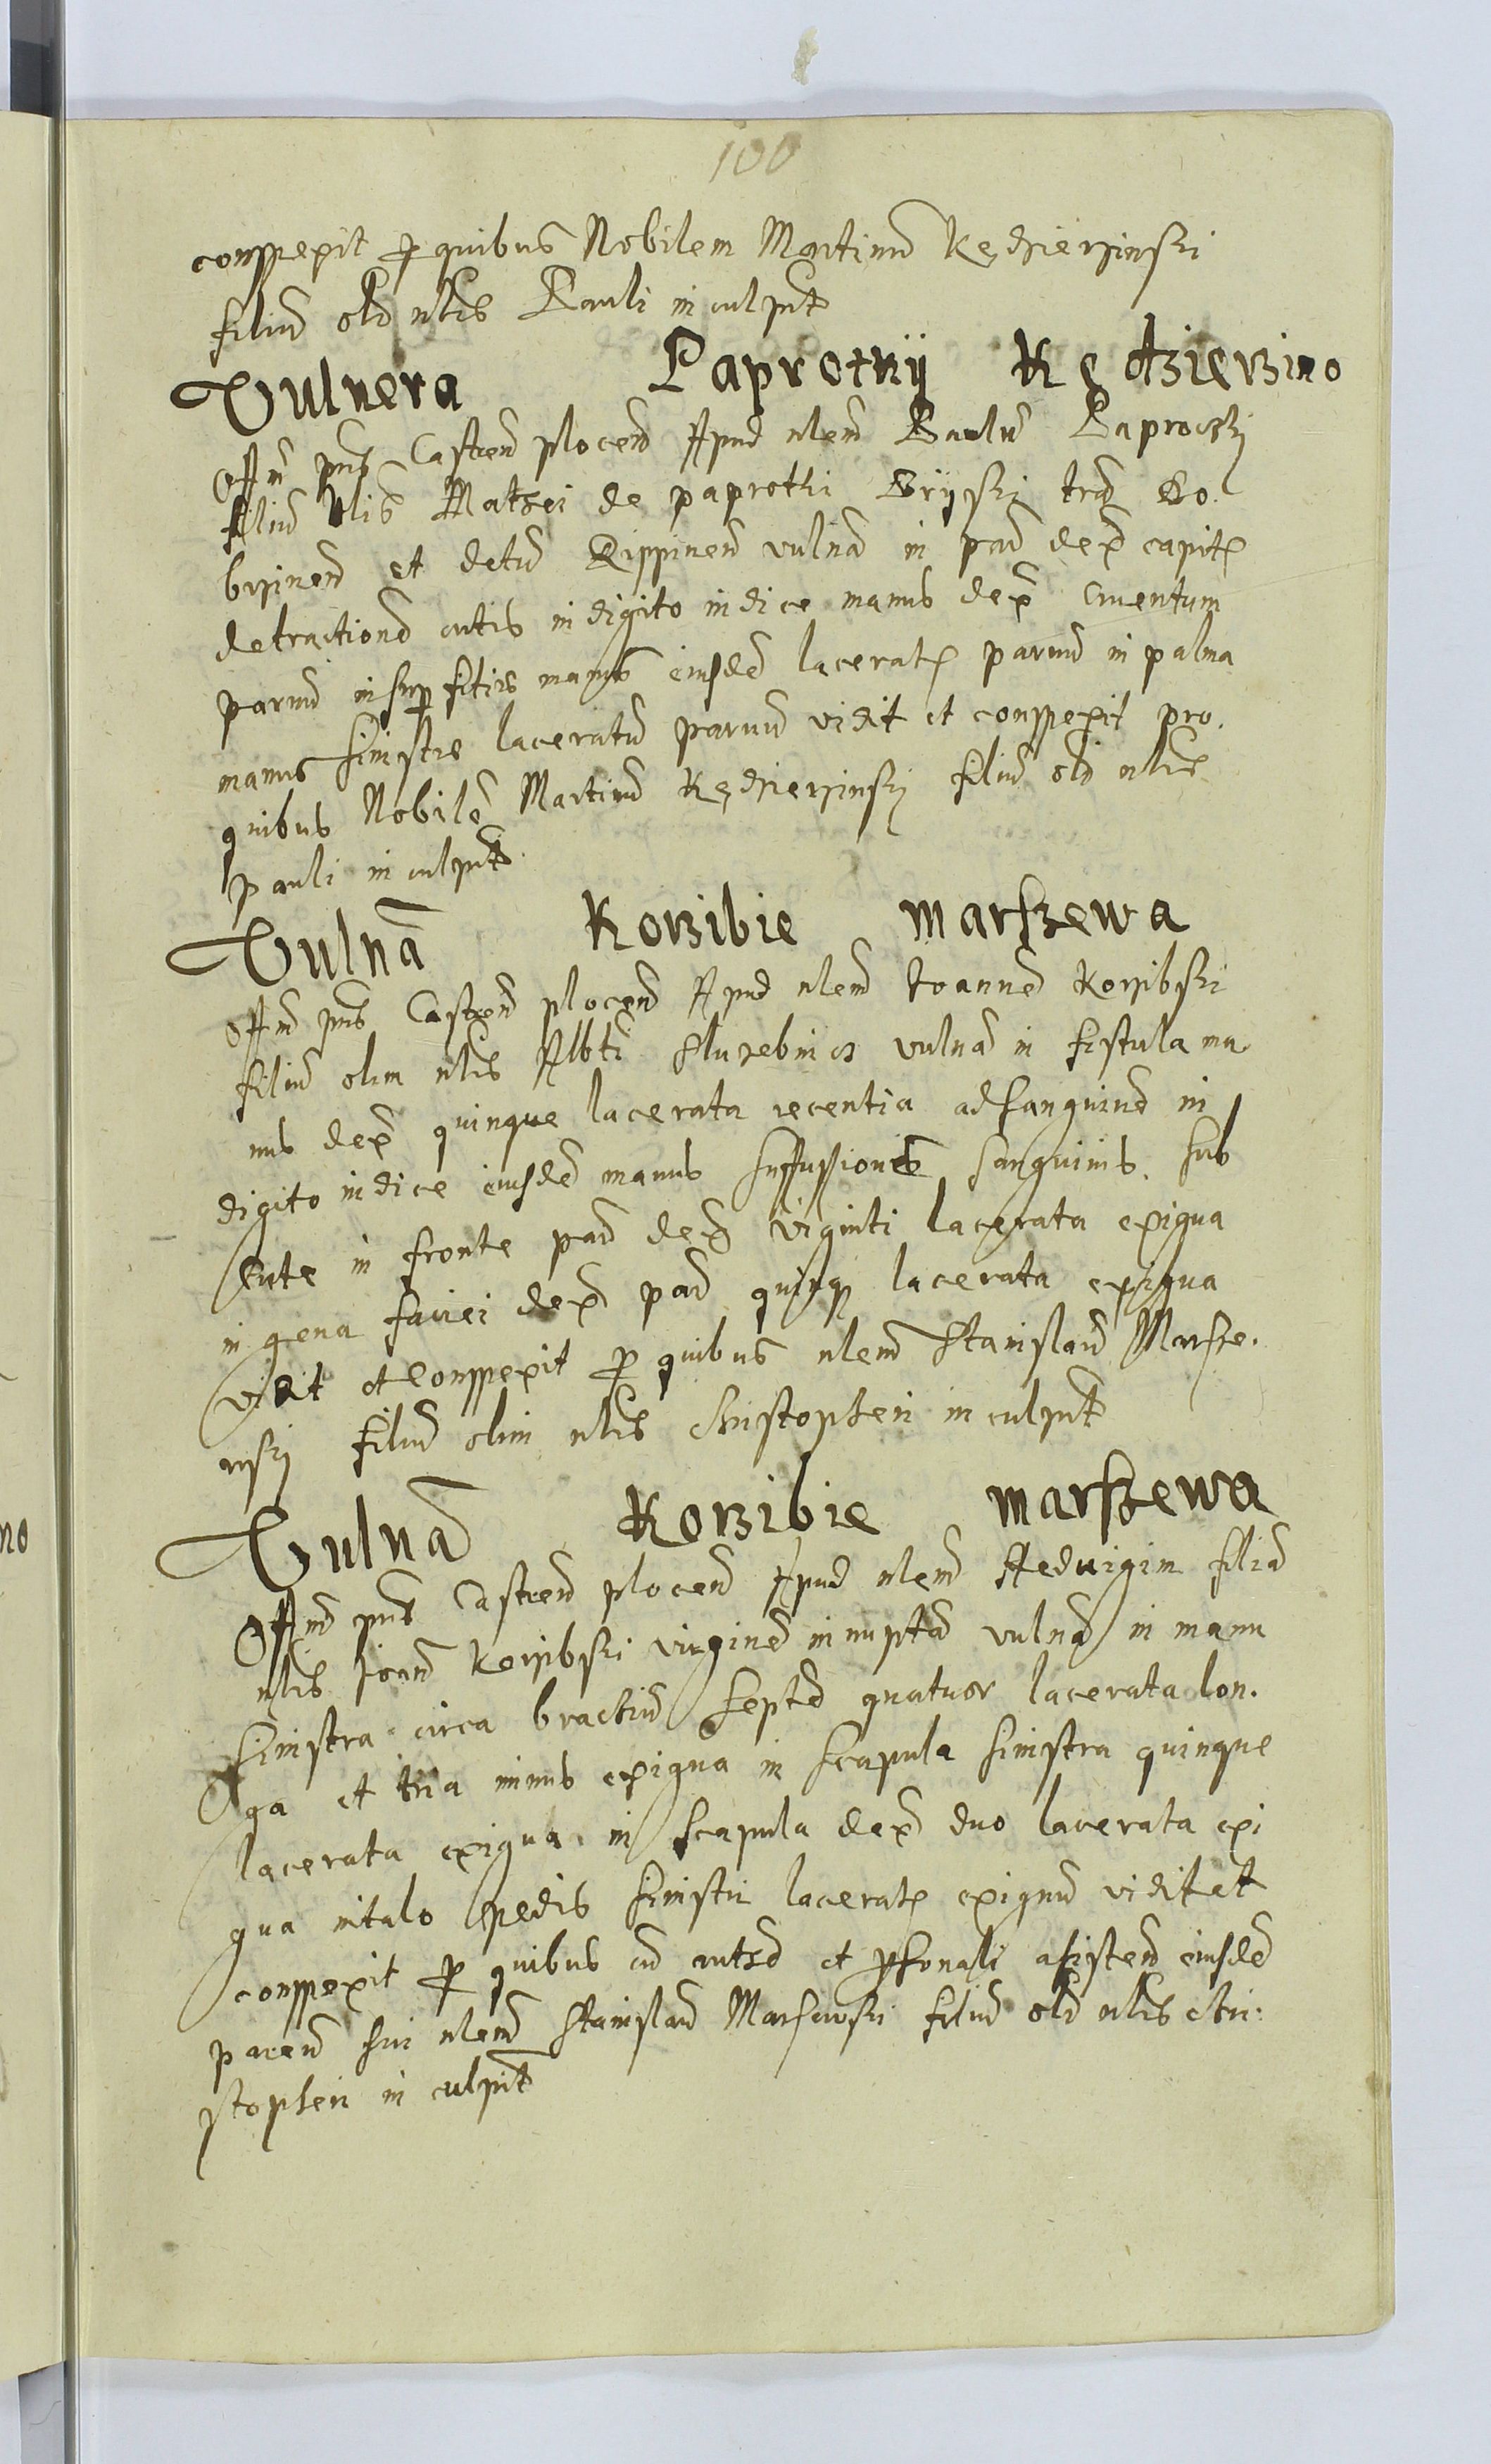 100
conspexit p quibus Nobilem Martinu Kędzierzinski
filiu oli nlis Pauli inculpat
Vulnera Paprotkij Kędzierzino
Offm pns Castren plocen Apud nlem Paulu Paproczki
filiu nlis Mathei de paprothi Brijski trae Do
brzinen et detu Rippinen vulna in par dex capitis
detractione cutis in digito indice manus dex cruentum
paruu in superfitie manus eiusde lacerat paruu in palma
manus sinistre laceratu paruu vidit et conspexit pro
quibus Nobile Martinu Kędzierzinski filiu oli nlis
pauli inculpat
Vulna Korzibie Marszewa
Offm pns Castren plocen Apud nlem Joanne Korzibski
filiu olim nlis Albti vulna in fistula ma
nus dex quinque lacerata recentia ad sanguine in
digito indice eiusde manus suffusiones sanguinis sub
cute in fronte par dex viginti lacerata exigua
in gena faciei dex par quinq lacerata exigua
vidit et conspexit p quibus nlem Stanislau Marsze
wski filiu olim nlis Christopheri inculpat
Vulna Korzibie Marszewa
Offm pns Castren plocen Apud nlem Hedvigim filia
nlis Joan Korzibski virgine innupta vulna in manu
sinistra circa brachiu septe quatuor lacerata lon
ga et tria minus exigua in scapula sinistra quinque
lacerata exigua in scapula dex duo lacerata exi
gua in talo pedis sinistri lacerat exiguu vidit et
conspexit p quibus cu et psonali asisten eiusde
paren sui nlem Stanislau Marszewski filiu oli nlis Chri
stopheri inculpit
no